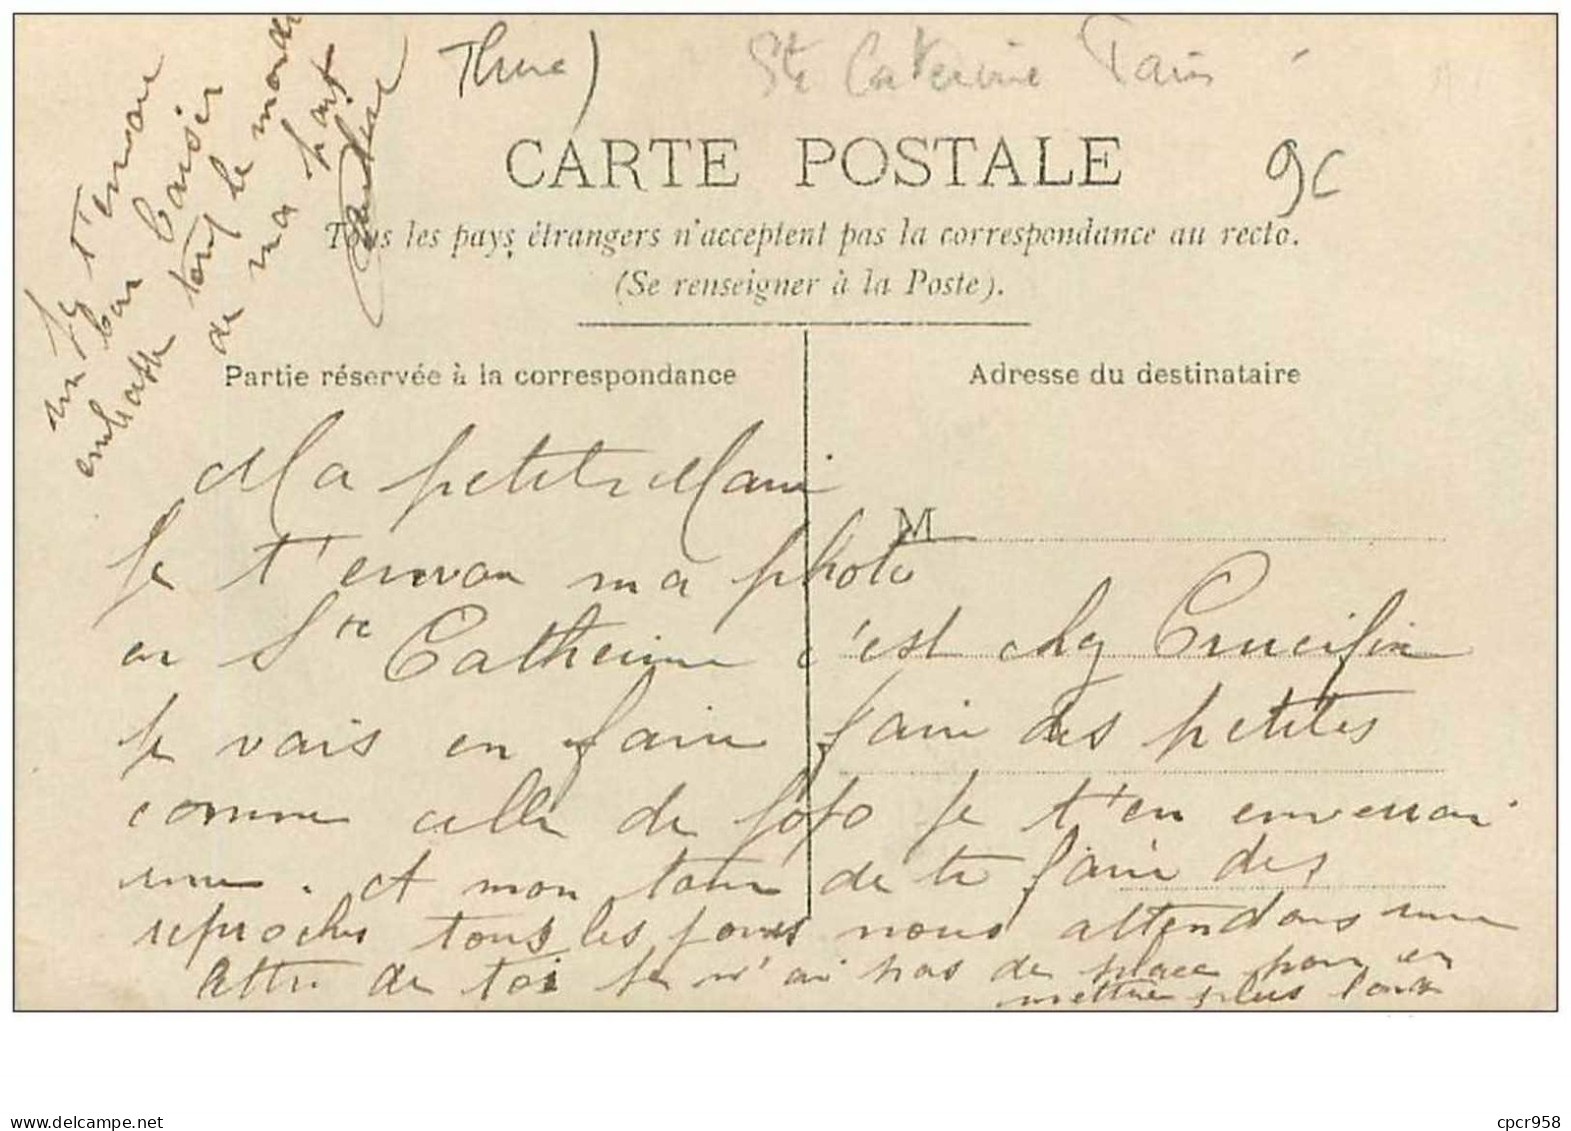 Ste Caterine Paris
9c
CARTE POSTALE
Tous les pays étrangers n'acceptent pas la correspondance au recto.
(Se renseigner à la Poste).
Partie réservée à la correspondance
Adresse du destinataire
M
Je t'envoie
un bon baiser
embrasse tout le monde
de ma part
Ma petite Marie
Je t'envoie ma photo
en Ste Catherine c'est chez Crucifix
je vais en faire faire des petites
comme celle de Fofo je t'en enverrai
une. A mon tour de te faire des
reproches tous les jours nous attendons une
lettre de toi je n'ai pas de place pour en
mettre plus long
www.delcampe.net
cpcr958